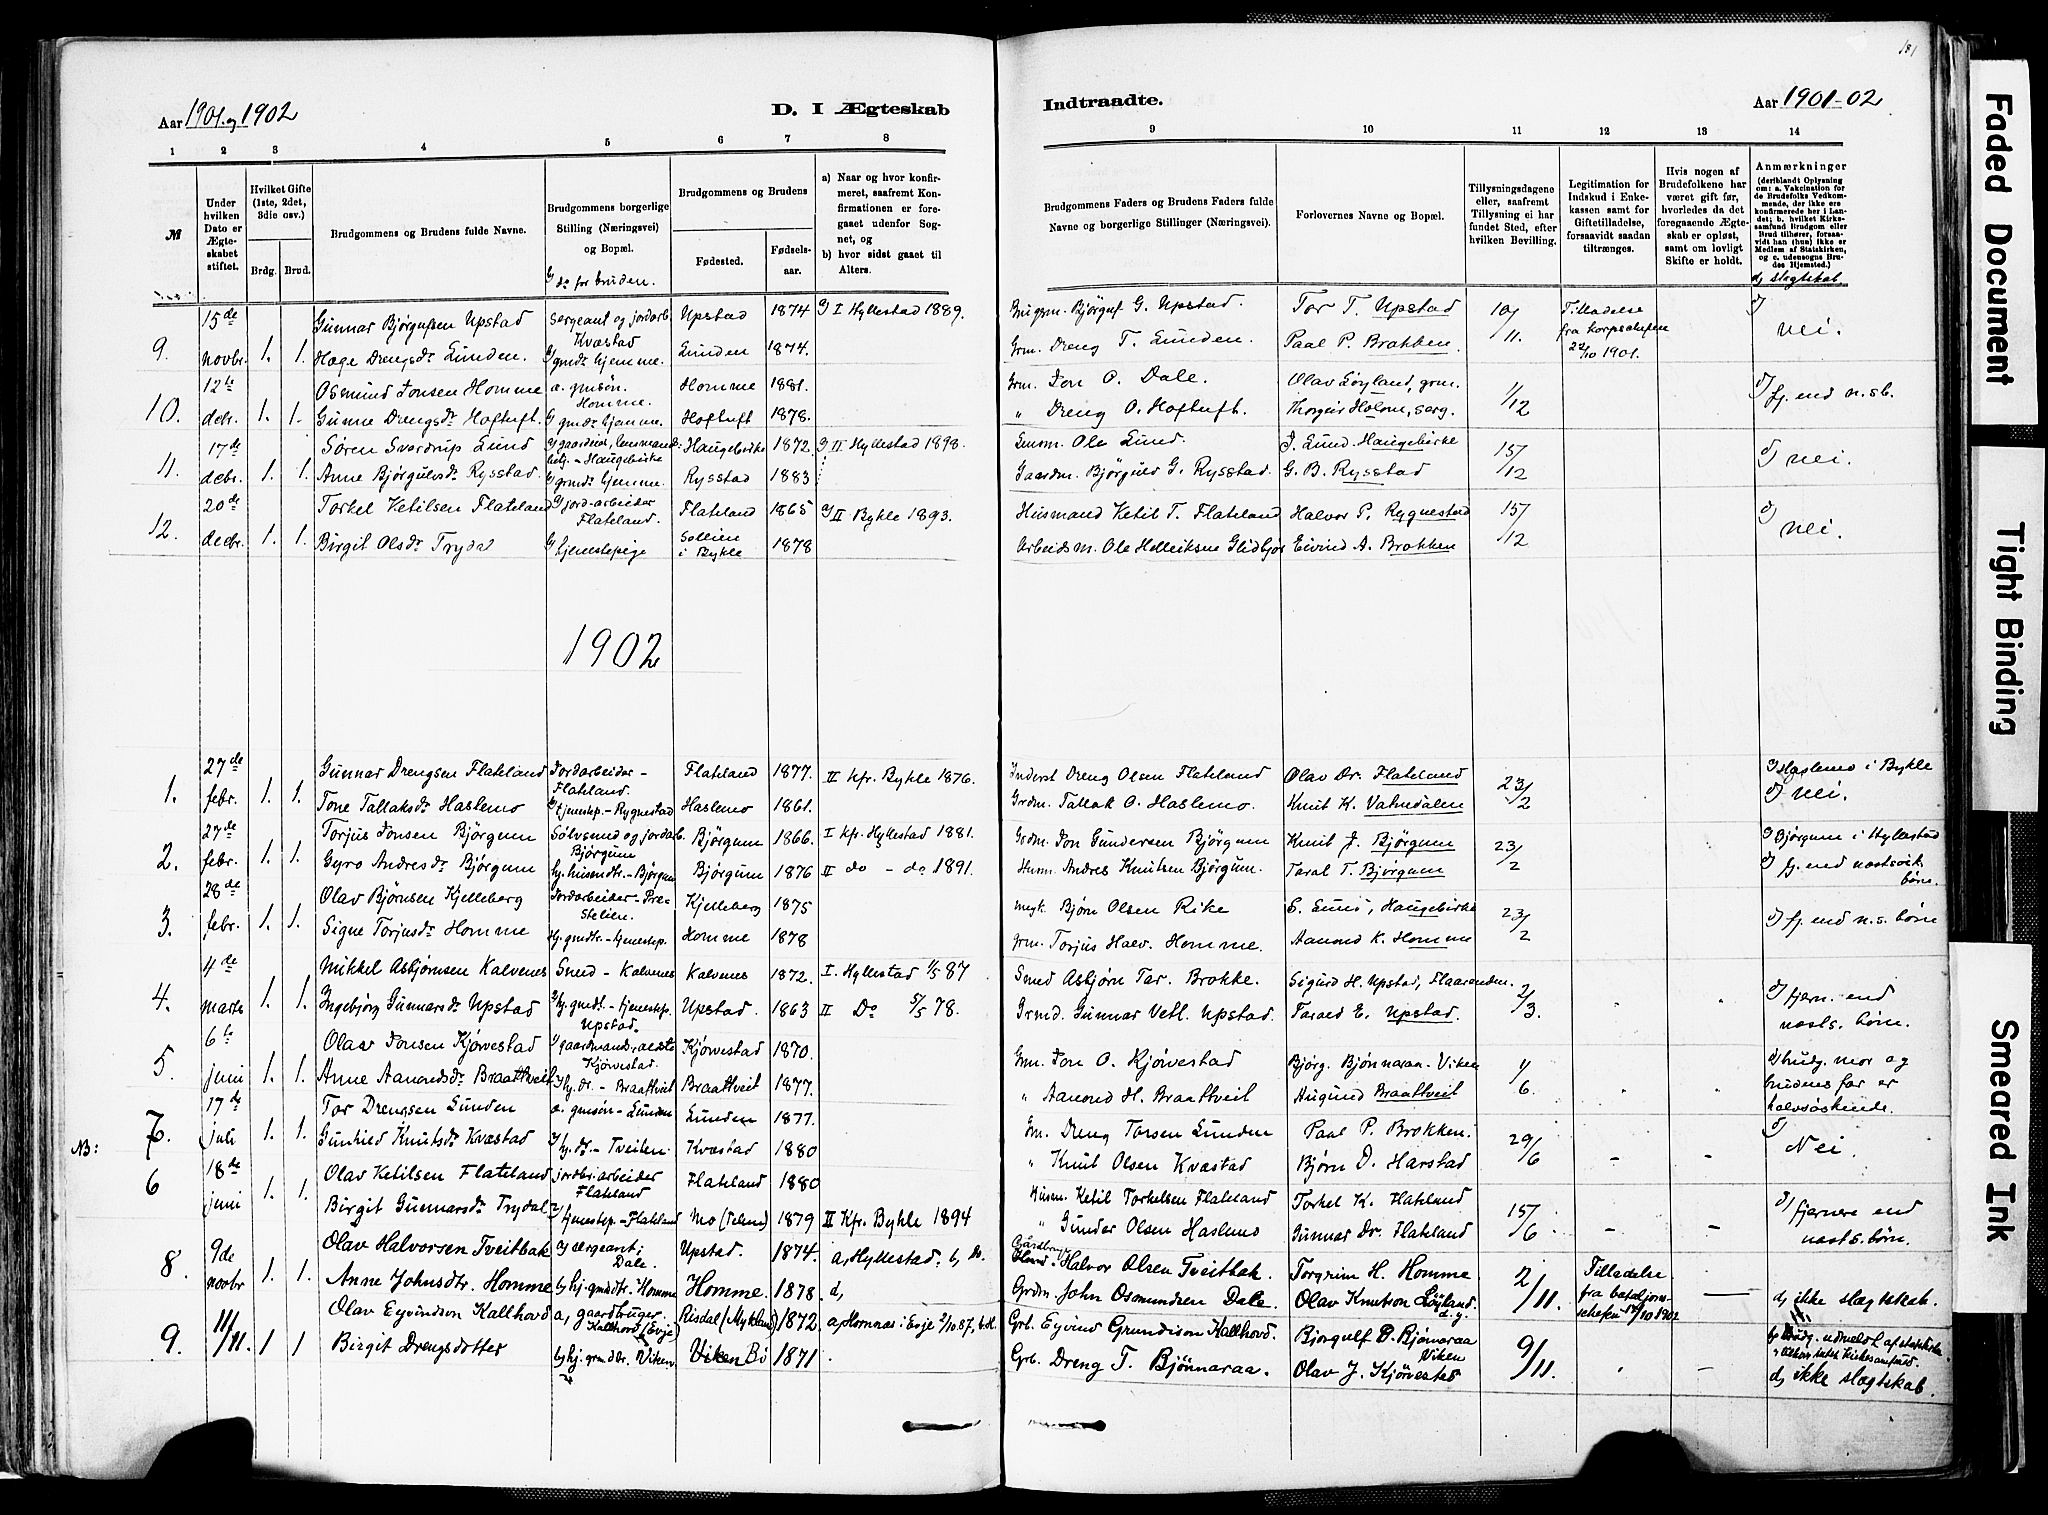 181
Aar 1901 og 1902
D. I Ægteskab
Indtraadte.
Aar 1901-02
1 2 3 4 5 6 7 8 9 10 11 12 13 14
No
Under hvilken Dato er Ægteskabet stiftet.
Hvilket Gifte (1ste, 2det, 3die osv.)
Brdg. Brud.
Brudgommens og Brudens fulde Navne.
Brudgommens borgerlige Stilling (Næringsvei) og Bopæl.
do for bruden.
Brudgommens og Brudens
Fødested.
Fødselsaar.
a) Naar og hvor konfirmeret, saafremt Konfirmationen er foregaaet udenfor Sognet, og
b) hvor sidst gaaet til Alters.
Brudgommens Faders og Brudens Faders fulde Navne og borgerlige Stillinger (Næringsvei).
Forlovernes Navne og Bopæl.
Tillysningsdagene eller, saafremt Tillysning ei har fundet Sted, efter hvilken Bevilling.
Legitimation for Indskud i Enkekassen samt for Giftetilladelse, forsaavidt saadan tiltrænges.
Hvis nogen af Brudefolkene har været gift før, hvorledes da det foregaaende Ægteskab er opløst, samt om lovligt Skifte er holdt.
Anmærkninger
(deriblandt Oplysning om: a. Vakcination for de Brudefolks Vedkommende, der ikke ere konfirmerede her i Landet; b. hvilket Kirkesamfund Brudgom eller Brud tilhører, forsaavidt han (hun) ikke er Medlem af Statskirken, og c. udensogns Brudes Hjemsted.)
d, slegtskab.
9. 15de novbr. 1. 1. Gunnar Bjørgufsen Upstad sergeant og jordarb. Kvæstad Upstad 1874 I Hyllestad 1889. Bjørguf G. Upstad. Tor T. Upstad 10/11. Tilladelse fra korpschefen 22/10 1901. nei.
Hæge Drengsdr Lunden. gmdr hjemme. Lunden 1874. Grm. Dreng T. Lunden. Paal P. Brokken.
10. 12te debr. 1. 1. Osmund Jonsen Homme a. gmsøn. Homme. Homme 1881. Grm. Jon O. Dale. Olav Løyland, grm. 1/12 fj. end n. sb.
Gunne Drengsdr Hoftuft. gmdr hjemme. Hoftuft 1878. " Dreng O. Hoftuft. Thorgus Holom, serg.
11. 17de debr. 1. 1. Søren Svardrup Lund gaardeier, lensmand Haugebirke Haugebirke 1872 II Hyllestad 1898. Ole Lund. J. Lund. Haugebirke 15/12 nei.
Anne Bjørgulvsdr Rysstad gmdr hjemme. Rysstad 1883 Gaardm. Bjørgulv G. Rysstad. G. B. Rysstad
12. 20de decbr. 1. 1. Torkel Ketilsen Flateland jord-arbeider Flateland. Flateland 1865 II Bykle 1893. Husmand Ketil T. Flateland Halvor P. Rygnestad 15/12 nei.
Birgit Olsdr Trydal tjenestepige Sollien i Bykle 1878 Arbeidsm. Ole Helliksen Glidbjør Eivind A. Brokken
1902
1. 27de febr. 1. 1. Gunnar Drengsen Flateland Jordarbeider - Flateland. Flateland 1877. II Kfr. Bykle 1876. Inderst Dreng Olsen Flateland Olav Dr. Flateland 23/2 Haslemo i Bykle
Tone Tallaksdr Haslemo tjenestep. - Rygnestad Haslemo 1861. Grdm. Tallak O. Haslemo. Knut K. Valndalen nei.
2. 27de febr. 1. 1. Torjus Jonsen Bjørgum Sølvsmed og jordarb. Bjørgum Bjørgum 1866. I kfr. Hyllestad 1881. Grdm. Jon Gundersen Bjørgum Knut J. Bjørgum 23/2 Bjørgum i Hyllestad
Gyro Andresdr Bjørgum hj. husmdtr. - Bjørgum Bjørgum 1876 II do - do 1891. Husm. Andres Knutsen Bjørgum. Taral T. Bjørgum fj. end næstsøsk. børn.
3. 28de febr. 1. 1. Olav Bjørnsen Kjelleberg Jordarbeider - Prestelien. Kjelleberg 1875 Bjørn Olsen Rike E. Lund, Haugebirke 23/2 fj. end n. s. børn
Signe Torjusdr Homme hj. gmdtr. - tjenestep. Homme 1878 grm. Torjus Halv. Homme. Aanond K. Homme
4. 4de marts 1. 1. Mikkel Asbjørnsen Kalvenes Smed - Kalvenes Kalvenes 1872. I. Hyllestad 1/5 87 Smed Asbjørn Tar. Brokke. Sigurd H. Upstad, Flaarenden. 2/3. fjern. end
Ingebjørg Gunnarsdr Upstad hj. gmdt. - tjenestep. Upstad. Upstad. 1863 II Do 5/5 78. Grmd. Gunnar Vetl. Upstad. Tarald E. Upstad. næsts. børn.
5. 6te juni 1. 1. Olav Jonsen Kjørvestad gaardmands ældste Kjørvestad. Kjørvestad 1870. Gm. Jon O. Kjørvestad Bjørg. Bjønnaraa - Viken 1/6. brudg. mor og
Anne Aanondsdr Braathveit hj. dr. - Braathveit Braathveit 1877. " Aanond H. Braathveit Augund Braathveit brudens far er halvsøskende.
NB: 7. 17de juli 1. 1. Tor Drengsen Lunden a. gmsøn - Lunden Lunden 1877. Gm. Dreng Torsen Lunden Paal P. Brokken. 29/6 Nei.
Gunhild Knutsdr Kvæstad hj. dr. - Tveiten. Kvæstad 1880 " Knut Olsen Kvæstad Bjørn D. Harstad
6 18de juni 1. 1. Olav Ketilsen Flateland jordbr. arbeider Flateland Flateland 1880 Husm. Ketil Torkelsen Flateland Torkel K. Flateland 15/6 fjernere end
Birgit Gunnarsdr Trydal tjenestep. - Flateland Mo (Telem.) 1879 II Kfr. Bykle 1894 " Gunder Olsen Haslemo Gunnar Dr. Flateland næsts. børn.
8. 9de novbr 1. 1. Olav Halvorsen Tveitbak sergeant; Dale. Upstad. 1874. a, Hyllestad. b, do. Gårdbruger Halvor Olsen Tveitbak. Torgrim H. Homme 2/11. Tilladelse fra bataljonschefen 14/10 1902
Anne Johnsdtr. Homme b, hj. gmdtr. Homme Homme. 1878. d, Grdm. John Osmundsen Dale. Olav Knutson Løyland. d. y. d, ikke slægtskab.
9. 11/11. 1 1 Olav Eyvindson Kallhovd a, gaardbruger Kallhovd (Evje) Risdal (Mykland) 1872. a, Hornnes i Evje 2/10 87, Grb. Eyvind Grundison Kallhovd. Bjorgulf D. Bjønaraa Viken 9/11. b, Brudg. udmeldt af statskirken
Birgit Drengsdotter b, hj. grmdtr. Viken Viken Bø 1871. Grb. Dreng T. Bjønnaraa. Olav J. Kjørvestad d, ikke slægtskab.
Faded Document
Tight Binding
Smeared Ink